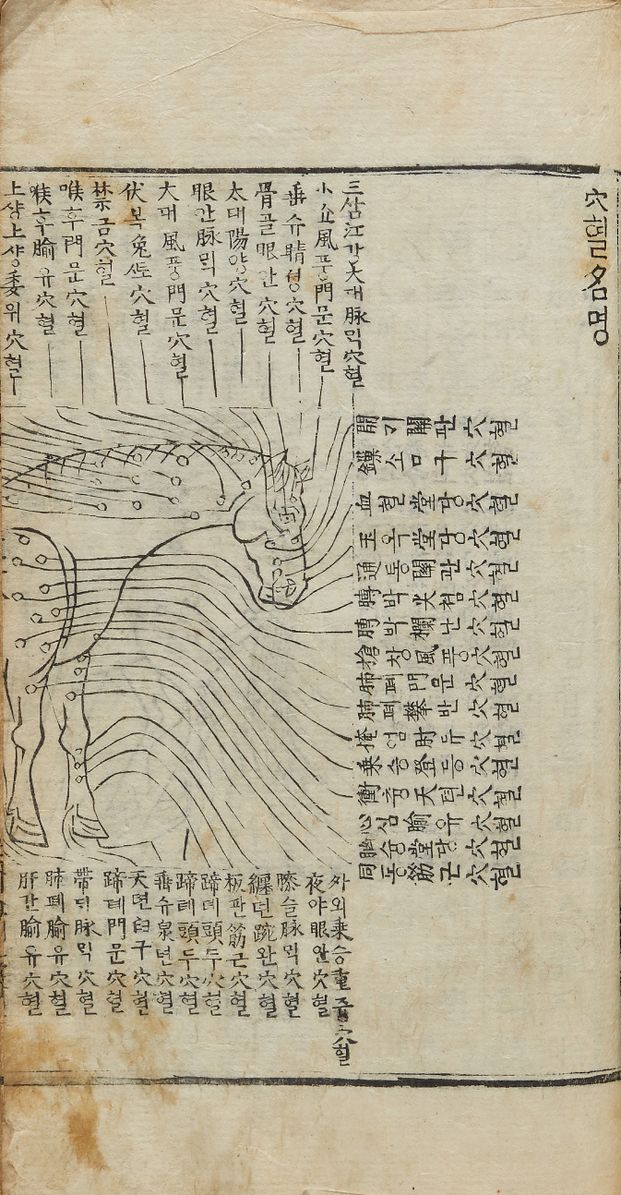 穴혈名명
三삼江강大대脉믹穴혈
小쇼風풍門문穴혈
垂슈睛쳥穴혈
骨골眼안穴혈
太대陽양穴혈
眼안脉믹穴혈
大대風풍門문穴혈
伏복兔토穴혈
禁금穴혈
喉후門문穴혈
喉후腧유穴혈
上샹上샹委위穴혈
開기關관穴혈
鏁소口구穴혈
血혈堂당穴혈
玉옥堂당穴혈
通통關관穴혈
膊박尖쳠穴혈
膊박欄난穴혈
搶창風풍穴혈
肺폐門문穴혈
肺폐攀반穴혈
掩엄肘듀穴혈
乗승登등穴혈
衝튱天텬穴혈
心심腧유穴혈
胸흉堂당穴혈
同동筋근穴혈
外외乗승重즁穴혈
夜야眼안穴혈
膝슬脉믹穴혈
纒뎐踠완穴혈
板판筋근穴혈
蹄뎨頭두穴혈
蹄뎨頭두穴혈
垂슈泉쳔穴혈
天텬臼구穴혈
蹄뎨門문穴혈
帶디脉믹穴혈
肺폐腧유穴혈
肝간腧유穴혈